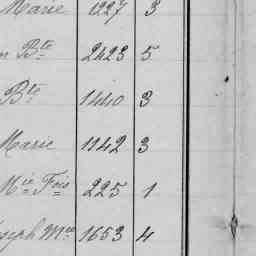 Marie 1227 3
n Bte 2423 5
Bte 1440 3
Marie 1142 3
Mie Fois 225 1
oseph Mce 1653 4